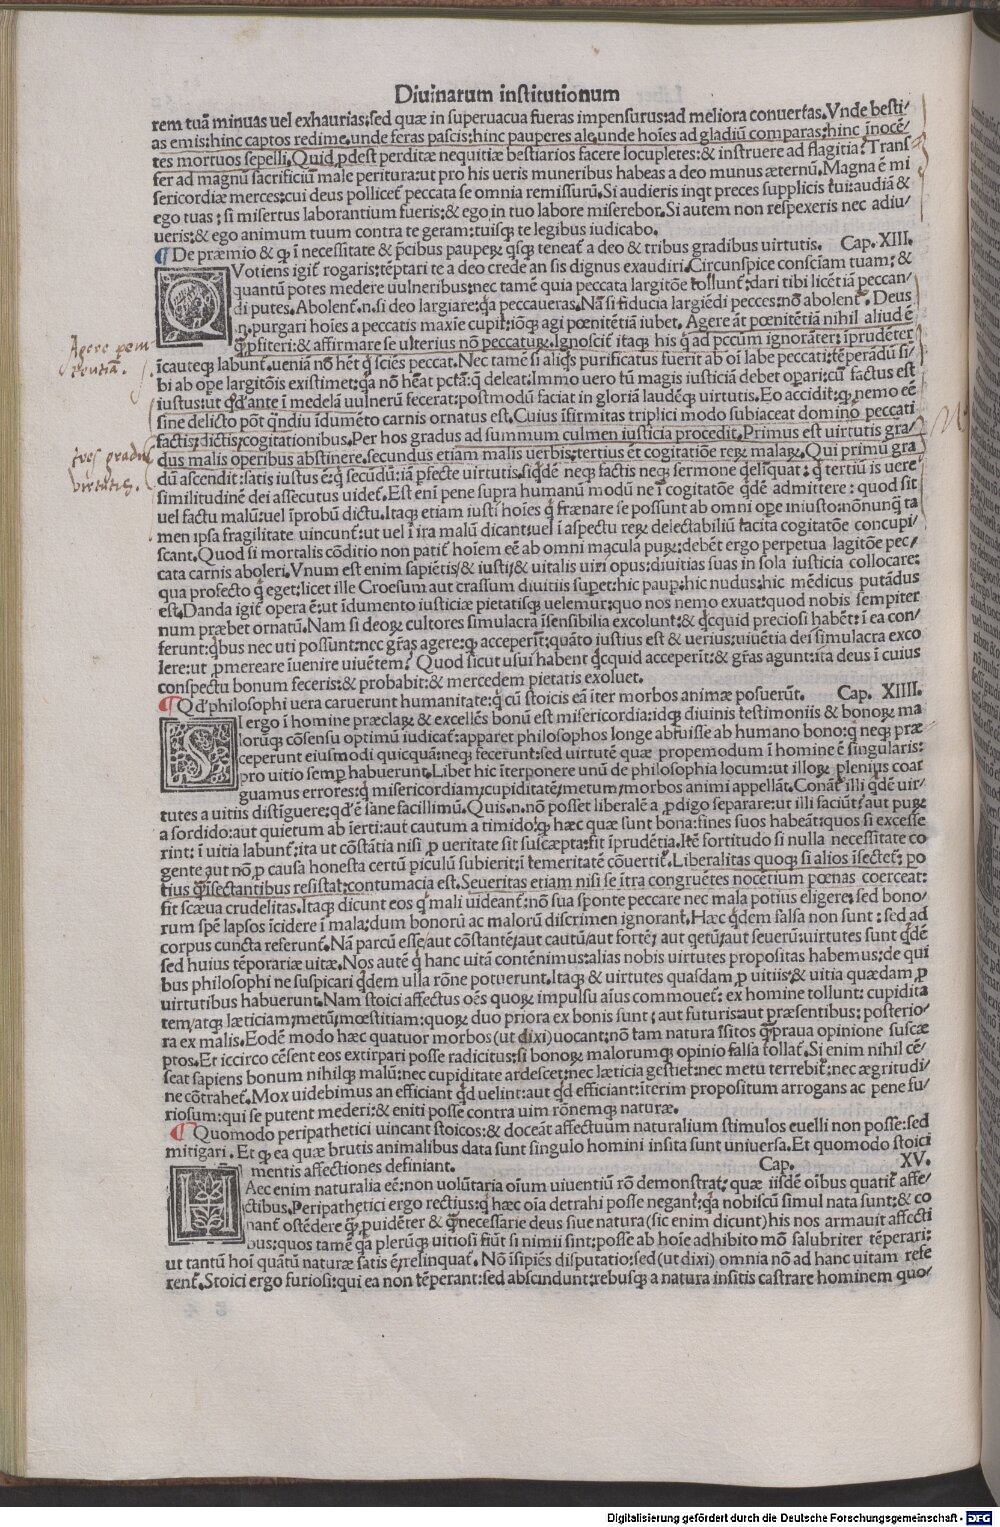 Diuinarum institutionum
rem tuã minuas uel exhaurias: sed quæ in superuacua fueras impensurus: ad meliora conuertas. Vnde besti/
as emis: hinc captos redime. unde feras pascis: hinc pauperes ale. unde hoĩes ad gladiũ comparas: hinc inocẽ/
tes mortuos sepelli. Quid ꝓdest perditæ nequitiæ bestiarios facere locupletes: & instruere ad flagitia? Trans
fer ad magnũ sacrificiũ male peritura: ut pro his ueris muneribus habeas a deo munus æternũ. Magna ẽ mi
sericordiæ merces: cui deus pollicet᷑ peccata se omnia remissurũ. Si audieris inqt preces supplicis tui: audiã &
ego tuas: si misertus laborantium fueris: & ego in tuo labore miserebor. Si autem non respexeris nec adiu/
ueris: & ego animum tuum contra te geram: tuisqꝫ te legibus iudicabo.
¶ De præmio & qꝫ ĩ necessitate & p̃cibus pauperꝝ qsqꝫ teneat᷑ a deo & tribus gradibus uirtutis. Cap. XIII.
QVotiens igit᷑ rogaris: tẽptari te a deo crede an sis dignus exaudiri. Circunspice consc̃iam tuam: &
quantũ potes medere uulneribus: nec tamẽ quia peccata largitõe tollunt᷑: dari tibi licẽtiã peccan/
di putes. Abolent᷑.n. si deo largiare: qa peccaueras. Nã si fiducia largiẽdi pecces: nõ abolent᷑. Deus
.n. purgari hoĩes a peccatis maxĩe cupit: iõqꝫ agi pœnitẽtiã iubet. Agere aũt pœnitẽtiã nihil aliud ẽ
q̃ꝫ ꝓfiteri: & affirmare se ulterius nõ peccaturꝝ. Ignoscit᷑ itaqꝫ his q ad pccũm ignorãter: ĩprudẽter
ĩcauteqꝫ labunt᷑. ueniã nõ het᷑ q sciẽs peccat. Nec tamẽ si aliqs purificatus fuerit ab oĩ labe peccati: tẽperãdũ si/
bi ab ope largitõis existimet: qa nõ hẽat pctã: q deleat. Immo uero tũ magis iusticiã debet oꝑari: cũ factus est
iustus: ut qd᷑ ante ĩ medelã uulnerũ fecerat: postmodũ faciat in gloriã laudẽqꝫ uirtutis. Eo accidit: qꝫ nemo eẽ
sine delicto põt q̃ndiu ĩdumẽto carnis ornatus est. Cuius ĩfirmitas triplici modo subiaceat domino peccati
factis: dictis: cogitationibus. Per hos gradus ad summum culmen iusticia procedit. Primus est uirtutis gra/
dus malis operibus abstinere. secundus etiam malis uerbis: tertius ẽt cogitatiõe rerꝝ malaꝝ. Qui primũ gra
dũ ascendit: satis iustus ẽ: q secũdũ: iã ꝑfecte uirtutis. siqdẽ neqꝫ factis neqꝫ sermone qdeliquat: q tertiũ is uere
similitudinẽ dei assecutus uidet᷑. Est enĩ pene supra humanũ modũ ne ĩ cogitatõe qdẽ admittere: quod sit
uel factu malũ: uel ĩprobũ dictu. Itaqꝫ etiam iusti hoĩes q frænare se possunt ab omni oꝑe iniusto: nõnunq̃ ta
men ipsa fragilitate uincunt᷑: ut uel ĩ ira malũ dicant: uel ĩ aspectu rerꝝ delectabiliũ tacita cogitatõe concupi/
scant. Quod si mortalis cõditio non patit᷑ hoĩem eẽ ab omni macula purꝝ: debẽt ergo perpetua lagitõe pec/
cata carnis aboleri. Vnum est enim sapiẽtis/ & iusti/ & uitalis uiri opus: diuitias suas in sola iusticia collocare:
qua profecto q eget: licet ille Crœsum aut crassum diuitiis suꝑet: hic paupꝑ: hic nudus: hic mẽdicus putãdus
est. Danda igit᷑ opera ẽ: ut ĩdumento iusticiæ pietatisqꝫ uelemur: quo nos nemo exuat: quod nobis sempiter
num præbet ornatũ. Nam si deorꝝ cultores simulacra ĩsensibilia excolunt: & qcquid preciosi habẽt: ĩ ea con/
ferunt: qbus nec uti possũnt: nec gr̃as agere: qꝫ acceperĩt: quãto iustius est & uerius: uiuẽtia dei simulacra exco
lere: ut ꝓmereare ĩuenire uiuẽtem? Quod sicut usui habent qcquid acceperĩt: & gr̃as agunt: ita deus ĩ cuius
conspectu bonum feceris: & probabit: & mercedem pietatis exoluet.
¶ Qd᷑ philosophi uera caruerunt humanitate: q cũ stoicis eã ĩter morbos animæ posuerũt. Cap. XIIII.
SI ergo ĩ homine præclaꝝ & excellẽs bonũ est misericordia: idqꝫ diuinis testimoniis & bonorꝝ ma
lorũqꝫ cõsensu optimũ iudicat᷑: apparet philosophos longe abfuisse ab humano bono: q neqꝫ præ
ceperunt eiusmodi quicquã: neqꝫ fecerunt: sed uirtutẽ quæ propemodum ĩ homine ẽ singularis:
pro uitio semꝑ habuerunt. Libet hic ĩterponere unũ de philosophia locum: ut illorꝝ plenius coar
guamus errores: q misericordiam/ cupiditatẽ/ metum/ morbos animi appellãt. Conat᷑ illi qdẽ uir/
tutes a uitiis distĩguere: qd᷑ ẽ sane facillimũ. Quis.n. nõ posset liberalẽ a ꝓdigo separare: ut illi faciũt/ aut purꝝ
a sordido: aut quietum ab ĩerti: aut cautum a timido: qꝫ hæc quæ sunt bona: fines suos habeãt: quos si excesse
rint: ĩ uitia labunt᷑: ita ut cõstãtia nisi ꝓ ueritate sit suscæpta: fit ĩprudẽtia. Itẽ fortitudo si nulla necessitate co
gente aut nõ ꝓ causa honesta certũ ꝑiculũ subierit: ĩ temeritatẽ cõuertit᷑. Liberalitas quoqꝫ si alios ĩsectet᷑: po
tius q̃ꝫ ĩsectantibus resistat: contumacia est. Seueritas etiam nisi se ĩtra congruẽtes nocẽtium pœnas coerceat:
fit scæua crudelitas. Itaqꝫ dicunt eos q mali uideant᷑: nõ sua sponte peccare nec mala potius eligere: sed bono/
rum spẽ lapsos ĩcidere ĩ mala: dum bonorũ ac malorũ discrimen ignorant. Hæc qdem falsa non sunt: sed ad
corpus cuncta referunt᷑. Nã parcũ esse/ aut cõstantẽ/ aut cautũ/ aut fortẽ/ aut qetũ/ aut seuerũ: uirtutes sunt qdẽ
sed huius tẽporariæ uitæ. Nos autẽ q hanc uitã contẽnimus: alias nobis uirtutes propositas habemus: de qui
bus philosophi ne suspicari qdem ulla rõne potuerunt. Itaqꝫ & uirtutes quasdam ꝓ uitiis: & uitia quædam ꝓ
uirtutibus habuerunt. Nam stoici affectus oẽs quorꝝ impulsu aĩus commouet᷑: ex homine tollunt: cupidita
tem/ atqꝫ læticiam/ metũ/ mœstitiam: quorꝝ duo priora ex bonis sunt: aut futuris: aut præsentibus: posterio/
ra ex malis. Eodẽ modo hæc quatuor morbos (ut dixi) uocant: nõ tam natura ĩsitos q̃ꝫ praua opinione suscæ
ptos. Et iccirco cẽsent eos extirpari posse radicitus: si bonorꝝ malorumqꝫ opinio falsa tollat᷑. Si enim nihil cẽ/
seat sapiens bonum nihilqꝫ malũ: nec cupiditate ardescet: nec læticia gestiet: nec metu terrebit᷑: nec ægritudi/
ne cõtrahet᷑. Mox uidebimus an efficiant qd uelint: aut qd efficiant: ĩterim propositum arrogans ac pene fu/
riosum: qui se putent mederi: & eniti posse contra uim rõnemqꝫ naturæ.
¶ Quomodo peripathetici uincant stoicos: & doceãt affectuum naturalium stimulos euelli non posse: sed
mitigari. Et qꝫ ea quæ brutis animalibus data sunt singulo homini insita sunt uniuersa. Et quomodo stoici
mentis affectiones definiant. Cap. XV.
HAec enim naturalia eẽ: non uolũtaria oĩum uiuentiũ rõ demonstrat: quæ iisdẽ oĩbus quatit᷑ affe/
ctibus. Peripathetici ergo rectius: q hæc oĩa detrahi posse negant: qa nobiscũ simul nata sunt: & co
nant᷑ ostẽdere q̃ꝫ ꝓuidẽter & q̃ꝫ necessarie deus siue natura (sic enim dicunt) his nos armauit affecti
bus: quos tamẽ qa plerũqꝫ uitiosi fiũt si nimii sint: posse ab hoĩe adhibito mõ salubriter tẽperari:
ut tantũ hoĩ quãtũ naturæ satis ẽ/ relinquat᷑. Nõ ĩsipiẽs disputatio: sed (ut dixi) omnia nõ ad hanc uitam refe
rent᷑. Stoici ergo furiosi: qui ea non tẽperant: sed abscindunt: rebusqꝫ a natura insitis castrare hominem quo/
Agere pœni
tentiã.
tres gradus
virtutis.
Digitalisierung gefördert durch die Deutsche Forschungsgemeinschaft - DFG